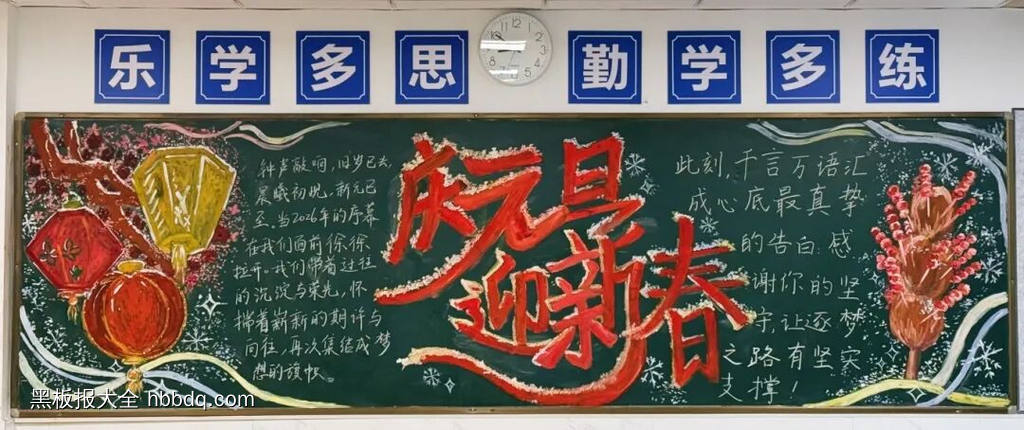 乐学多思 勤学多练
庆元旦
迎新春
钟声敲响,旧岁已去,
晨曦初晚。新元已
至。当2026年的序幕
在我们面前徐徐
拉开。我们带着过往
的沉淀与荣光,怀
揣着崭新的期许与
向往,再次集结成梦
想的旗帜。
此刻,千言万语汇
成心底最真挚
的告白感
谢你的坚
守,让逐梦
之路有坚实
支撑!
黑板报大全 hbbdq.com